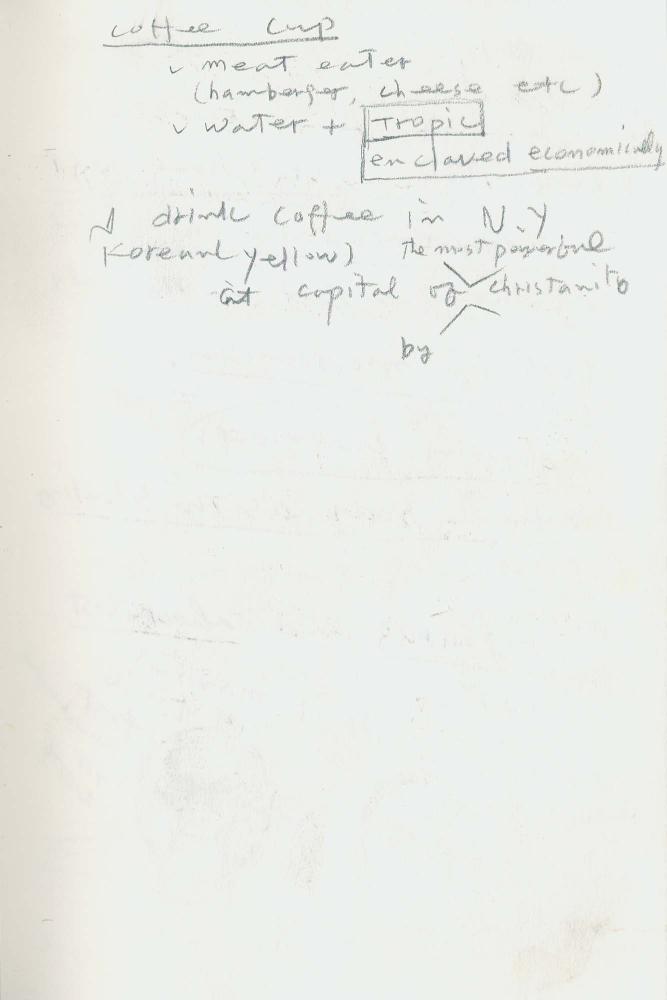 coffee cup
✓ meat eater
(hamberger, cheese etc)
✓ water + Tropic
enclaved economically
I drink coffee in N.Y
Korean yellow) the most powerful
at capital of christanity
by